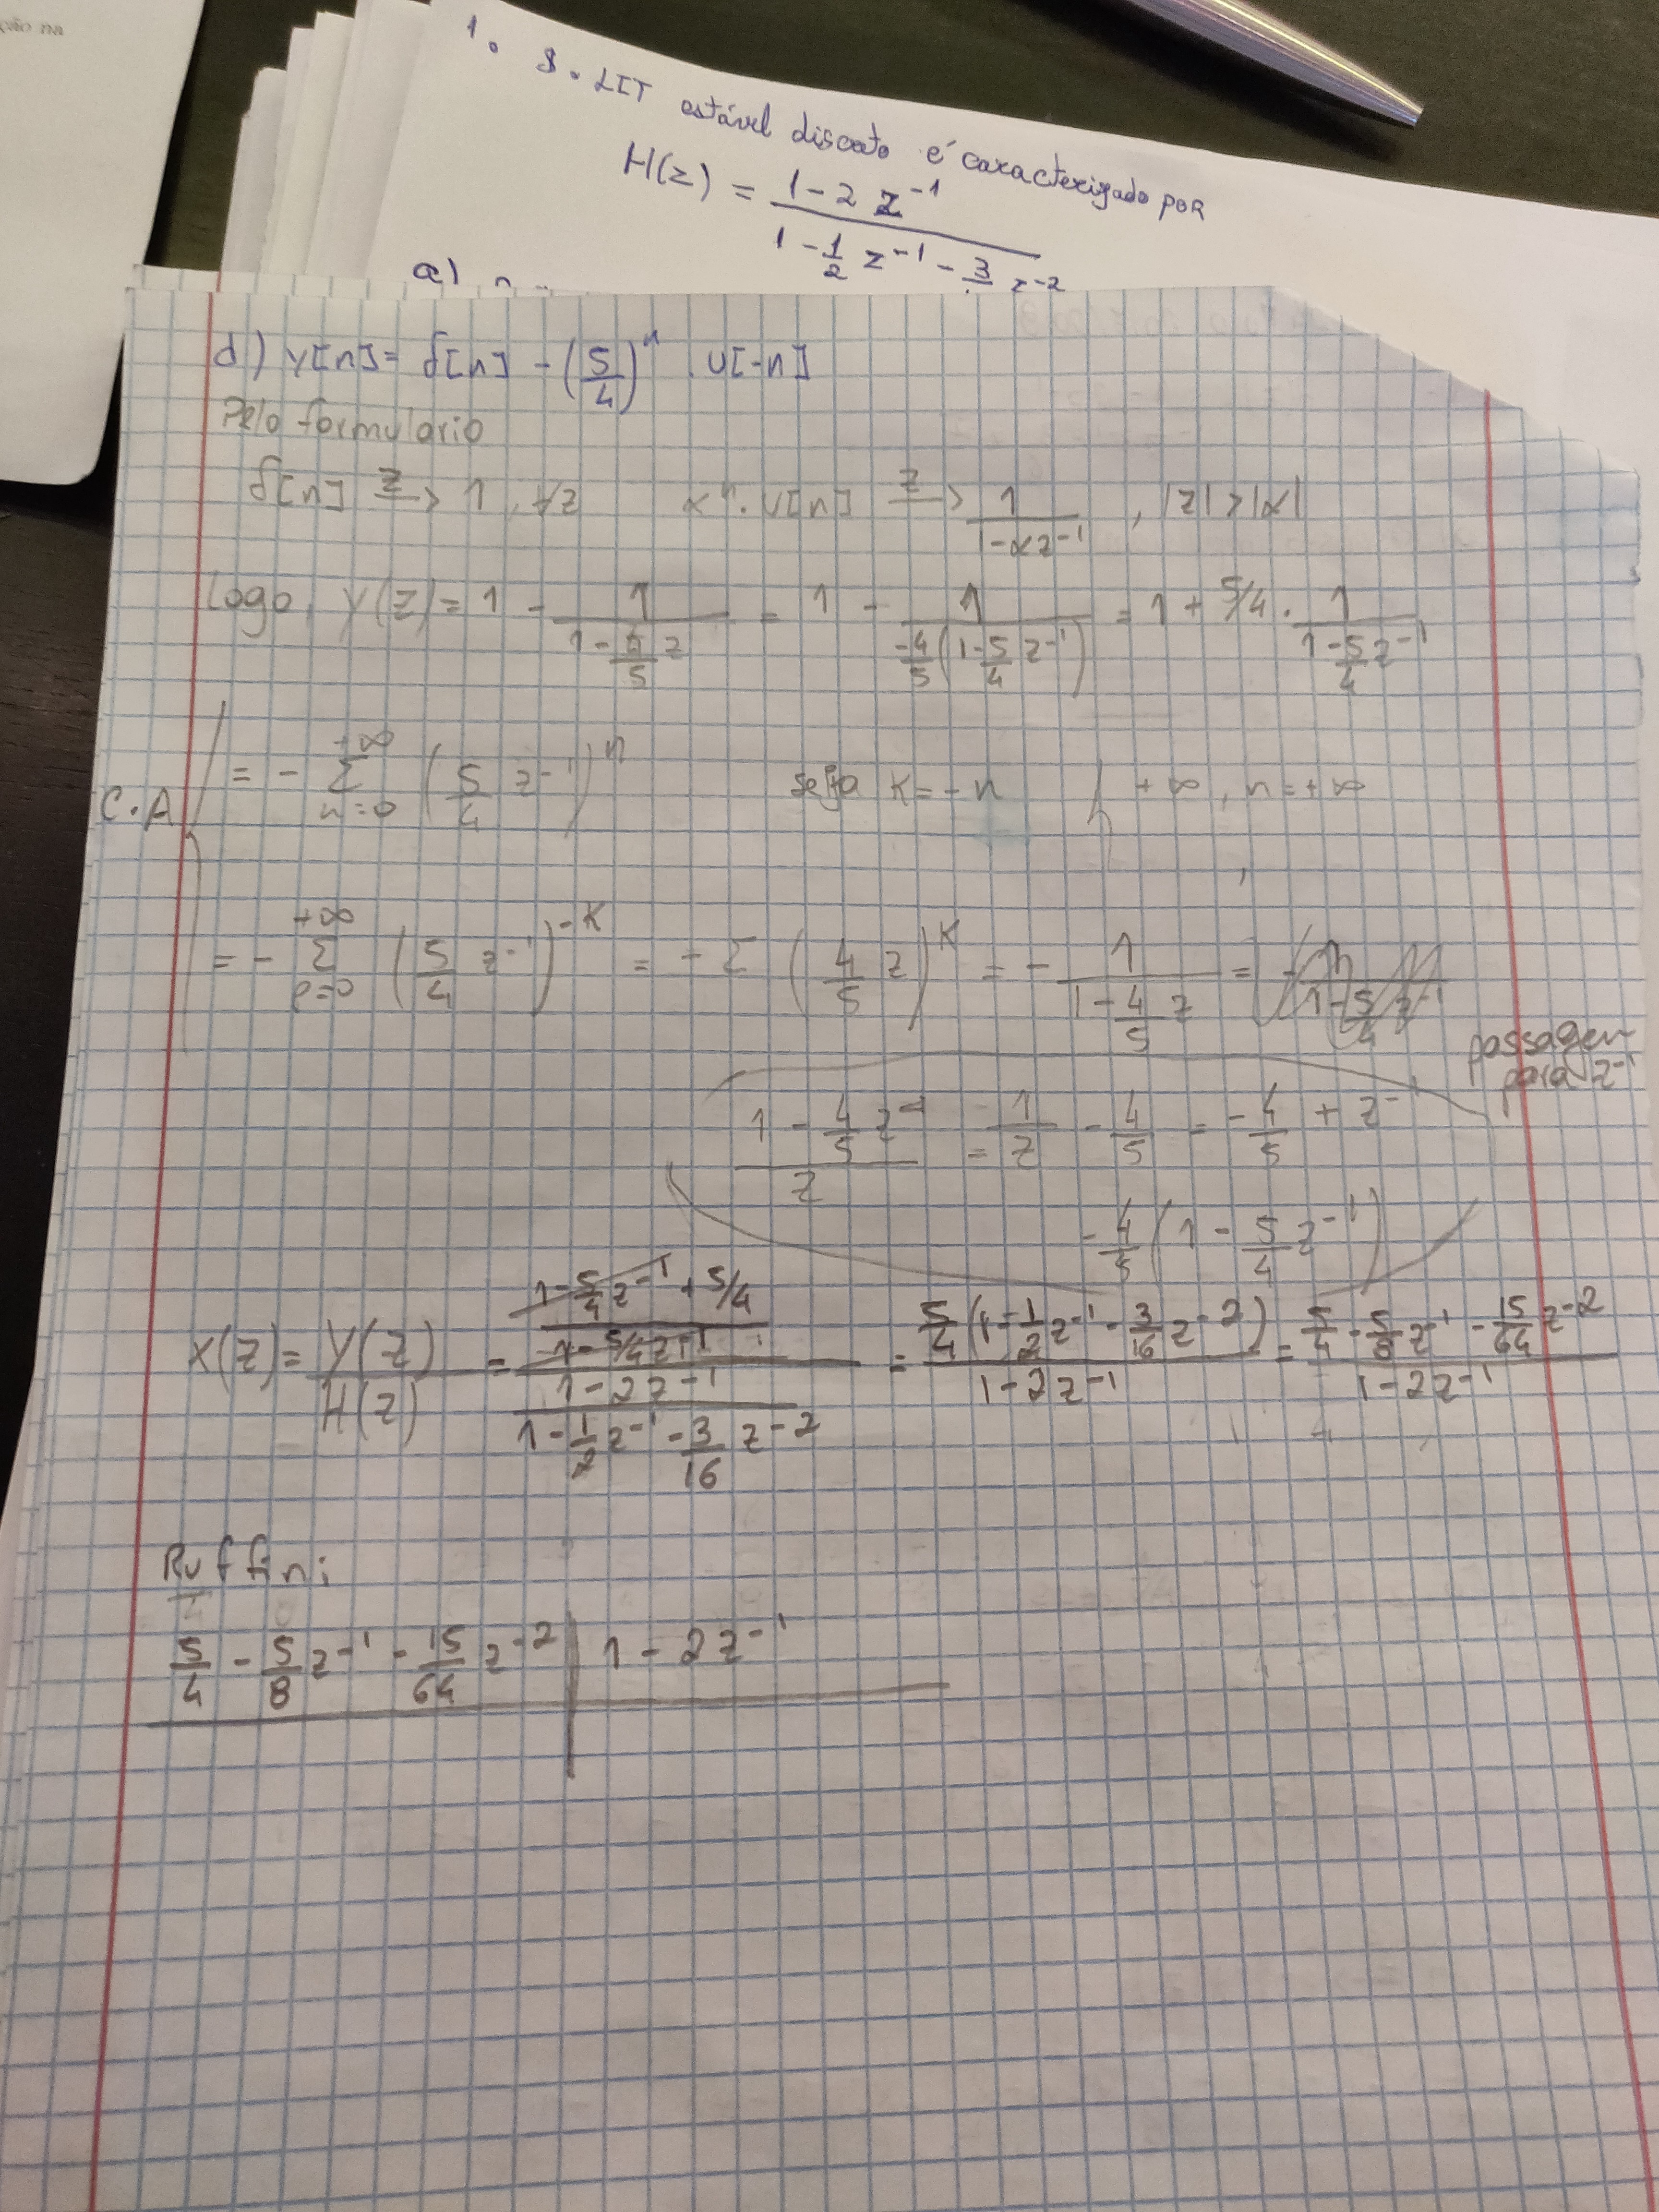 ção na
1. S. LIT estável discreto é caracterizado por
H(z) = (1 - 2 z^-1) / (1 - 1/2 z^-1 - 3/ z^-2)
a)
d) y[n] = δ[n] - (5/4)^n . u[-n]
Pelo formulario
δ[n] -z-> 1, ∀z    α^n . u[n] -z-> 1/(1-αz^-1) , |z|>|α|
Logo, Y(z) = 1 - 1/(1 - 4/5 z) = 1 - 1/(-4/5 (1 - 5/4 z^-1)) = 1 + 5/4 . 1/(1 - 5/4 z^-1)
C.A
= - Σ_{n=0}^{+∞} (5/4 z^-1)^n    seja K = -n    +∞, n=+∞
= - Σ^{+∞} (5/4 z^-1)^-K = - Σ (4/5 z)^K = - 1/(1 - 4/5 z) =
passagem para z^-1
(1 - 4/5 z)/z = 1/z - 4/5 = -4/5 + z^-
-4/5 (1 - 5/4 z^-1)
X(z) = Y(z)/H(z) = ((1 - 5/4 z^-1 + 5/4)/(1 - 5/4 z^-1))/((1 - 2z^-1)/(1 - 1/2 z^-1 - 3/16 z^-2)) = (5/4 (1 - 1/2 z^-1 - 3/16 z^-2))/(1 - 2z^-1) = (5/4 - 5/8 z^-1 - 15/64 z^-2)/(1 - 2z^-1)
Ruffini
5/4 - 5/8 z^-1 - 15/64 z^-2 | 1 - 2z^-1